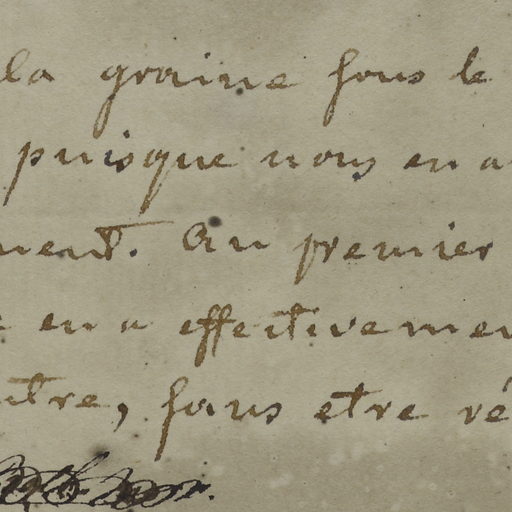 la graine sous le
puisque nous en a
ment. Au premier
en a effectivemen
utre, sans etre ré